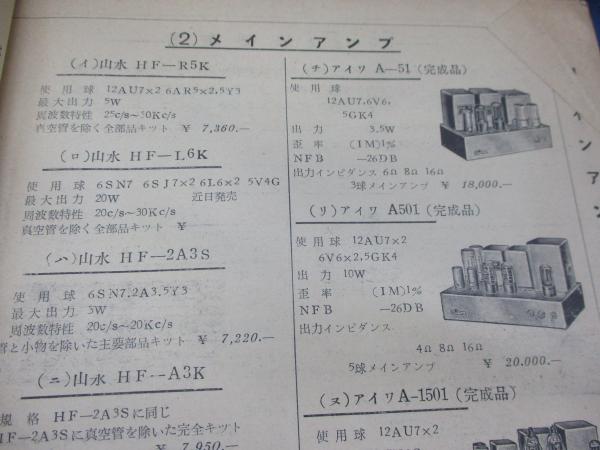 (2) メインアンプ
(イ)山水 HF—R5K
使用球 12AU7×2 6AR5×2,5Y3
最大出力 5W
周波数特性 25c/s〜30Kc/s
真空管を除く全部品キット ￥ 7,360.—
(ロ)山水 HF—L6K
使用球 6SN7 6SJ7×2 6L6×2 5V4G
最大出力 20W 近日発売
周波数特性 20c/s〜30Kc/s
真空管を除く全部品キット ￥
(ハ)山水 HF—2A3S
使用球 6SN7,2A3,5Y3
最大出力 3W
周波数特性 20c/s〜20Kc/s
管と小物を除いた主要部品キット ￥ 7,220.—
(ニ)山水 HF—A3K
規格 HF—2A3Sに同じ
HF—2A3Sに真空管を除いた完全キット
￥ 7,950.—
(チ)アイワ A—51 (完成品)
使用球
12AU7,6V6,
5GK4
出力 3.5W
歪率 (IM)1%
NFB —26DB
出力インピダンス 6Ω 8Ω 16Ω
3球メインアンプ ￥ 18,000.—
(リ)アイワ A501 (完成品)
使用球 12AU7×2
6V6×2,5GK4
出力 10W
歪率 (IM)1%
NFB —26DB
出力インピダンス
4Ω 8Ω 16Ω
5球メインアンプ ￥ 20.000.—
(ヌ)アイワA-1501 (完成品)
使用球 12AU7×2
メインア